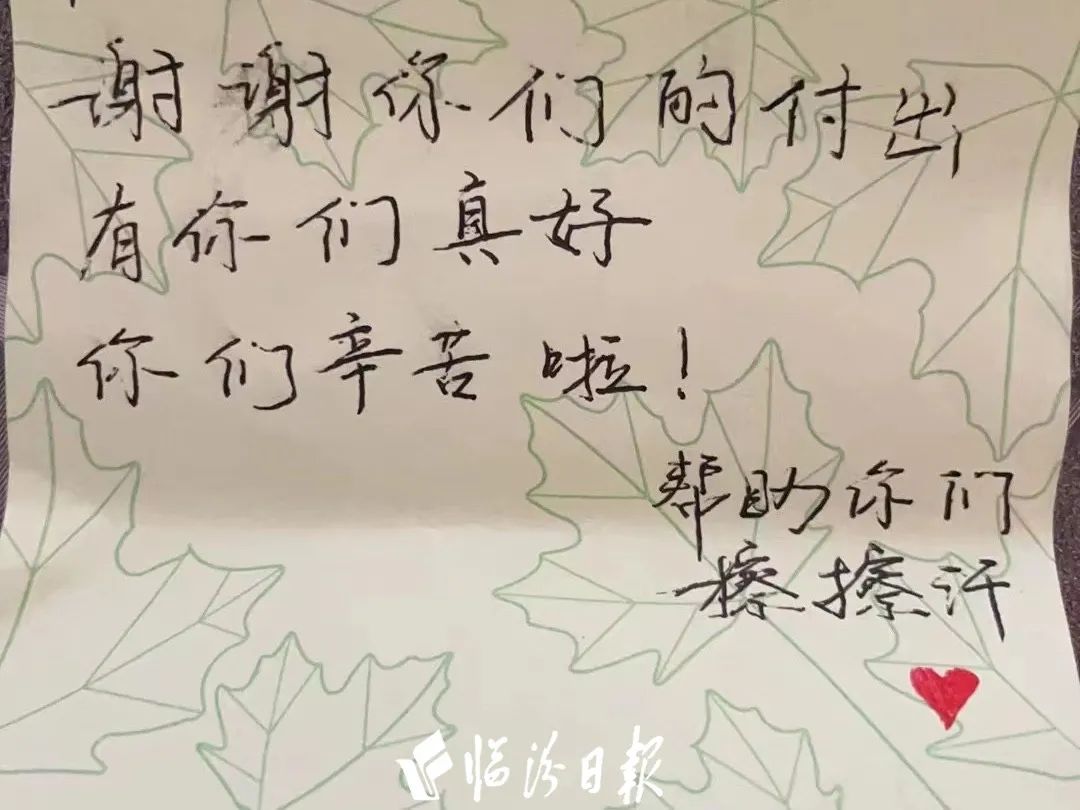 谢谢你们的付出
有你们真好
你们辛苦啦！
帮助你们
擦擦汗
临汾日报